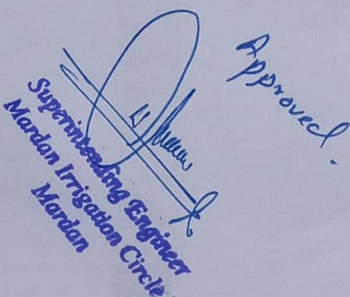 Approved.
Superintending Engineer
Mardan Irrigation Circle
Mardan